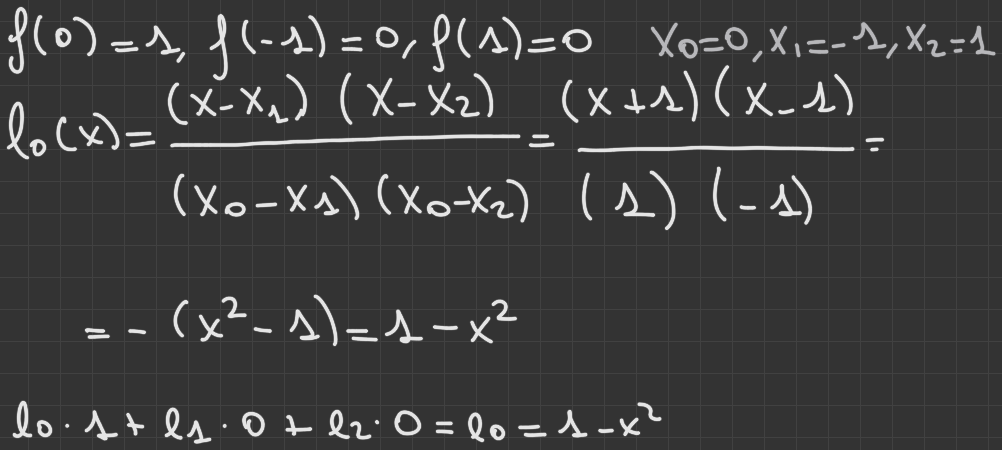 f(0)=1, f(-1)=0, f(1)=0 x₀=0, x₁=-1, x₂=1
l₀(x)= (x-x₁)(x-x₂) / (x₀-x₁)(x₀-x₂) = (x+1)(x-1) / (1)(-1) =
= -(x²-1)=1-x²
l₀·1+l₁·0+l₂·0=l₀=1-x²